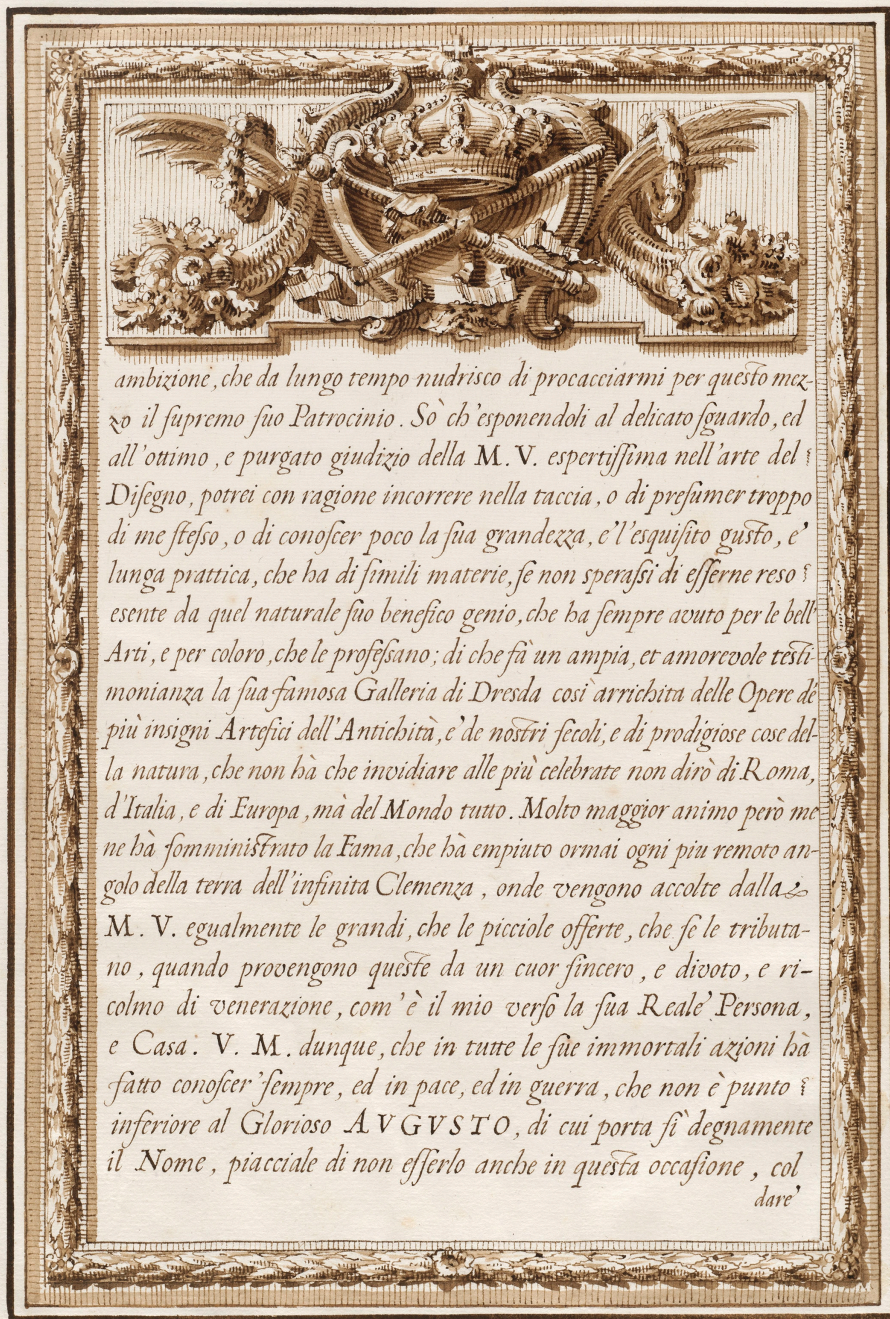 ambizione, che da lungo tempo nudrisco di procacciarmi per questo mez-
zo il ſupremo ſuo Patrocinio. Sò ch'esponendoli al delicato ſguardo, ed
all'ottimo, e purgato giudizio della M. V. espertiſſima nell'arte del
Diſegno, potrei con ragione incorrere nella taccia, o di preſumer troppo
di me ſteſso, o di conoſcer poco la ſua grandezza, e' l'esquiſito gusto, e'
lunga prattica, che ha di ſimili materie, ſe non speraſsi di eſſerne reso
esente da quel naturale ſuo benefico genio, che ha ſempre avuto per le bell'
Arti, e per coloro, che le profeſsano; di che fà un ampia, et amorevole testi-
monianza la ſua famosa Galleria di Dresda così arrichita delle Opere de'
più insigni Artefici dell'Antichità, e' de nostri ſecoli, e di prodigiose cose del-
la natura, che non hà che invidiare alle più celebrate non dirò di Roma,
d'Italia, e di Europa, mà del Mondo tutto. Molto maggior animo però me
ne hà ſomministrato la Fama, che hà empiuto ormai ogni piu remoto an-
golo della terra dell'infinita Clemenza, onde vengono accolte dalla
M. V. egualmente le grandi, che le picciole offerte, che ſe le tributa-
no, quando provengono queste da un cuor ſincero, e divoto, e ri-
colmo di venerazione, com'è il mio verſo la ſua Reale' Persona,
e Casa. V. M. dunque, che in tutte le ſue immortali azioni hà
fatto conoſcer' ſempre, ed in pace, ed in guerra, che non è punto
inferiore al Glorioso AVGVSTO, di cui porta ſì degnamente
il Nome, piacciale di non eſſerlo anche in questa occaſione, col
dare'